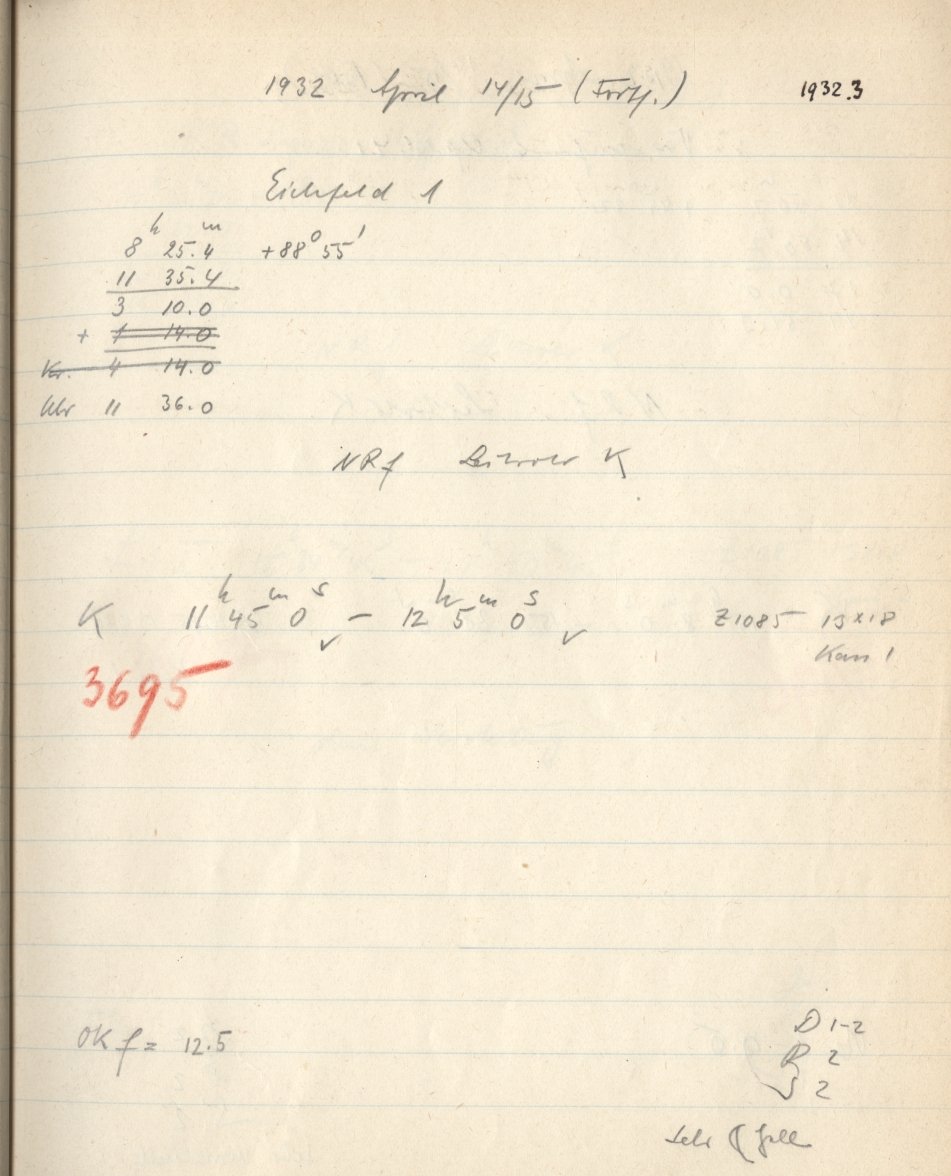 1932 April 14/15 (Forts.) 1932.3
Eichfeld 1
8h 25.4m +88° 55'
11 35.4
3 10.0
+ 1 14.0
Kr. 4 14.0
Uhr 11 36.0
NRf K
K 11h 45m 0s ✓ – 12h 5m 0s ✓ Z1085 13×18
Kass 1
3695
OKf = 12.5
D 1-2
R 2
S 2
sehr hell